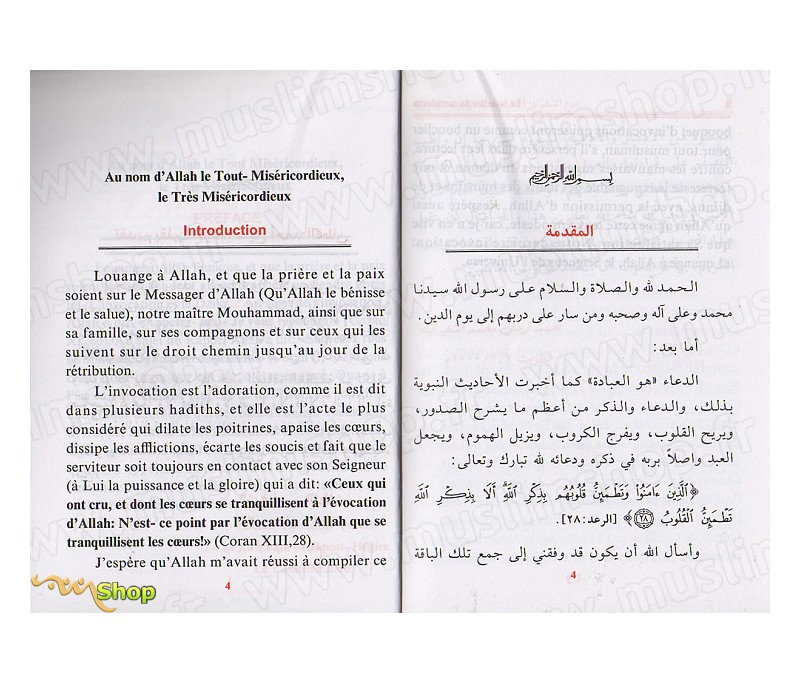 Au nom d'Allah le Tout- Miséricordieux,
le Très Miséricordieux
Introduction
Louange à Allah, et que la prière et la paix
soient sur le Messager d'Allah (Qu'Allah le bénisse
et le salue), notre maître Mouhammad, ainsi que sur
sa famille, sur ses compagnons et sur ceux qui les
suivent sur le droit chemin jusqu'au jour de la
rétribution.
L'invocation est l'adoration, comme il est dit
dans plusieurs hadiths, et elle est l'acte le plus
considéré qui dilate les poitrines, apaise les cœurs,
dissipe les afflictions, écarte les soucis et fait que le
serviteur soit toujours en contact avec son Seigneur
(à Lui la puissance et la gloire) qui a dit: «Ceux qui
ont cru, et dont les cœurs se tranquillisent à l'évocation
d'Allah: N'est- ce point par l'évocation d'Allah que se
tranquillisent les cœurs!» (Coran XIII,28).
J'espère qu'Allah m'avait réussi à compiler ce
4
بسم الله الرحمن الرحيم
المقدمة
الحمد لله والصلاة والسلام على رسول الله سيدنا
محمد وعلى آله وصحبه ومن سار على دربهم إلى يوم الدين.
أما بعد:
الدعاء «هو العبادة» كما أخبرت الأحاديث النبوية
بذلك، والدعاء والذكر من أعظم ما يشرح الصدور،
ويريح القلوب، ويفرج الكروب، ويزيل الهموم، ويجعل
العبد واصلاً بربه في ذكره ودعائه لله تبارك وتعالى:
﴿ٱلَّذِينَ ءَامَنُوا۟ وَتَطْمَئِنُّ قُلُوبُهُم بِذِكْرِ ٱللَّهِ ۗ أَلَا بِذِكْرِ ٱللَّهِ
تَطْمَئِنُّ ٱلْقُلُوبُ ٢٨﴾ [الرعد: ٢٨].
وأسأل الله أن يكون قد وفقني إلى جمع تلك الباقة
4
www.muslimshop.fr
Shop